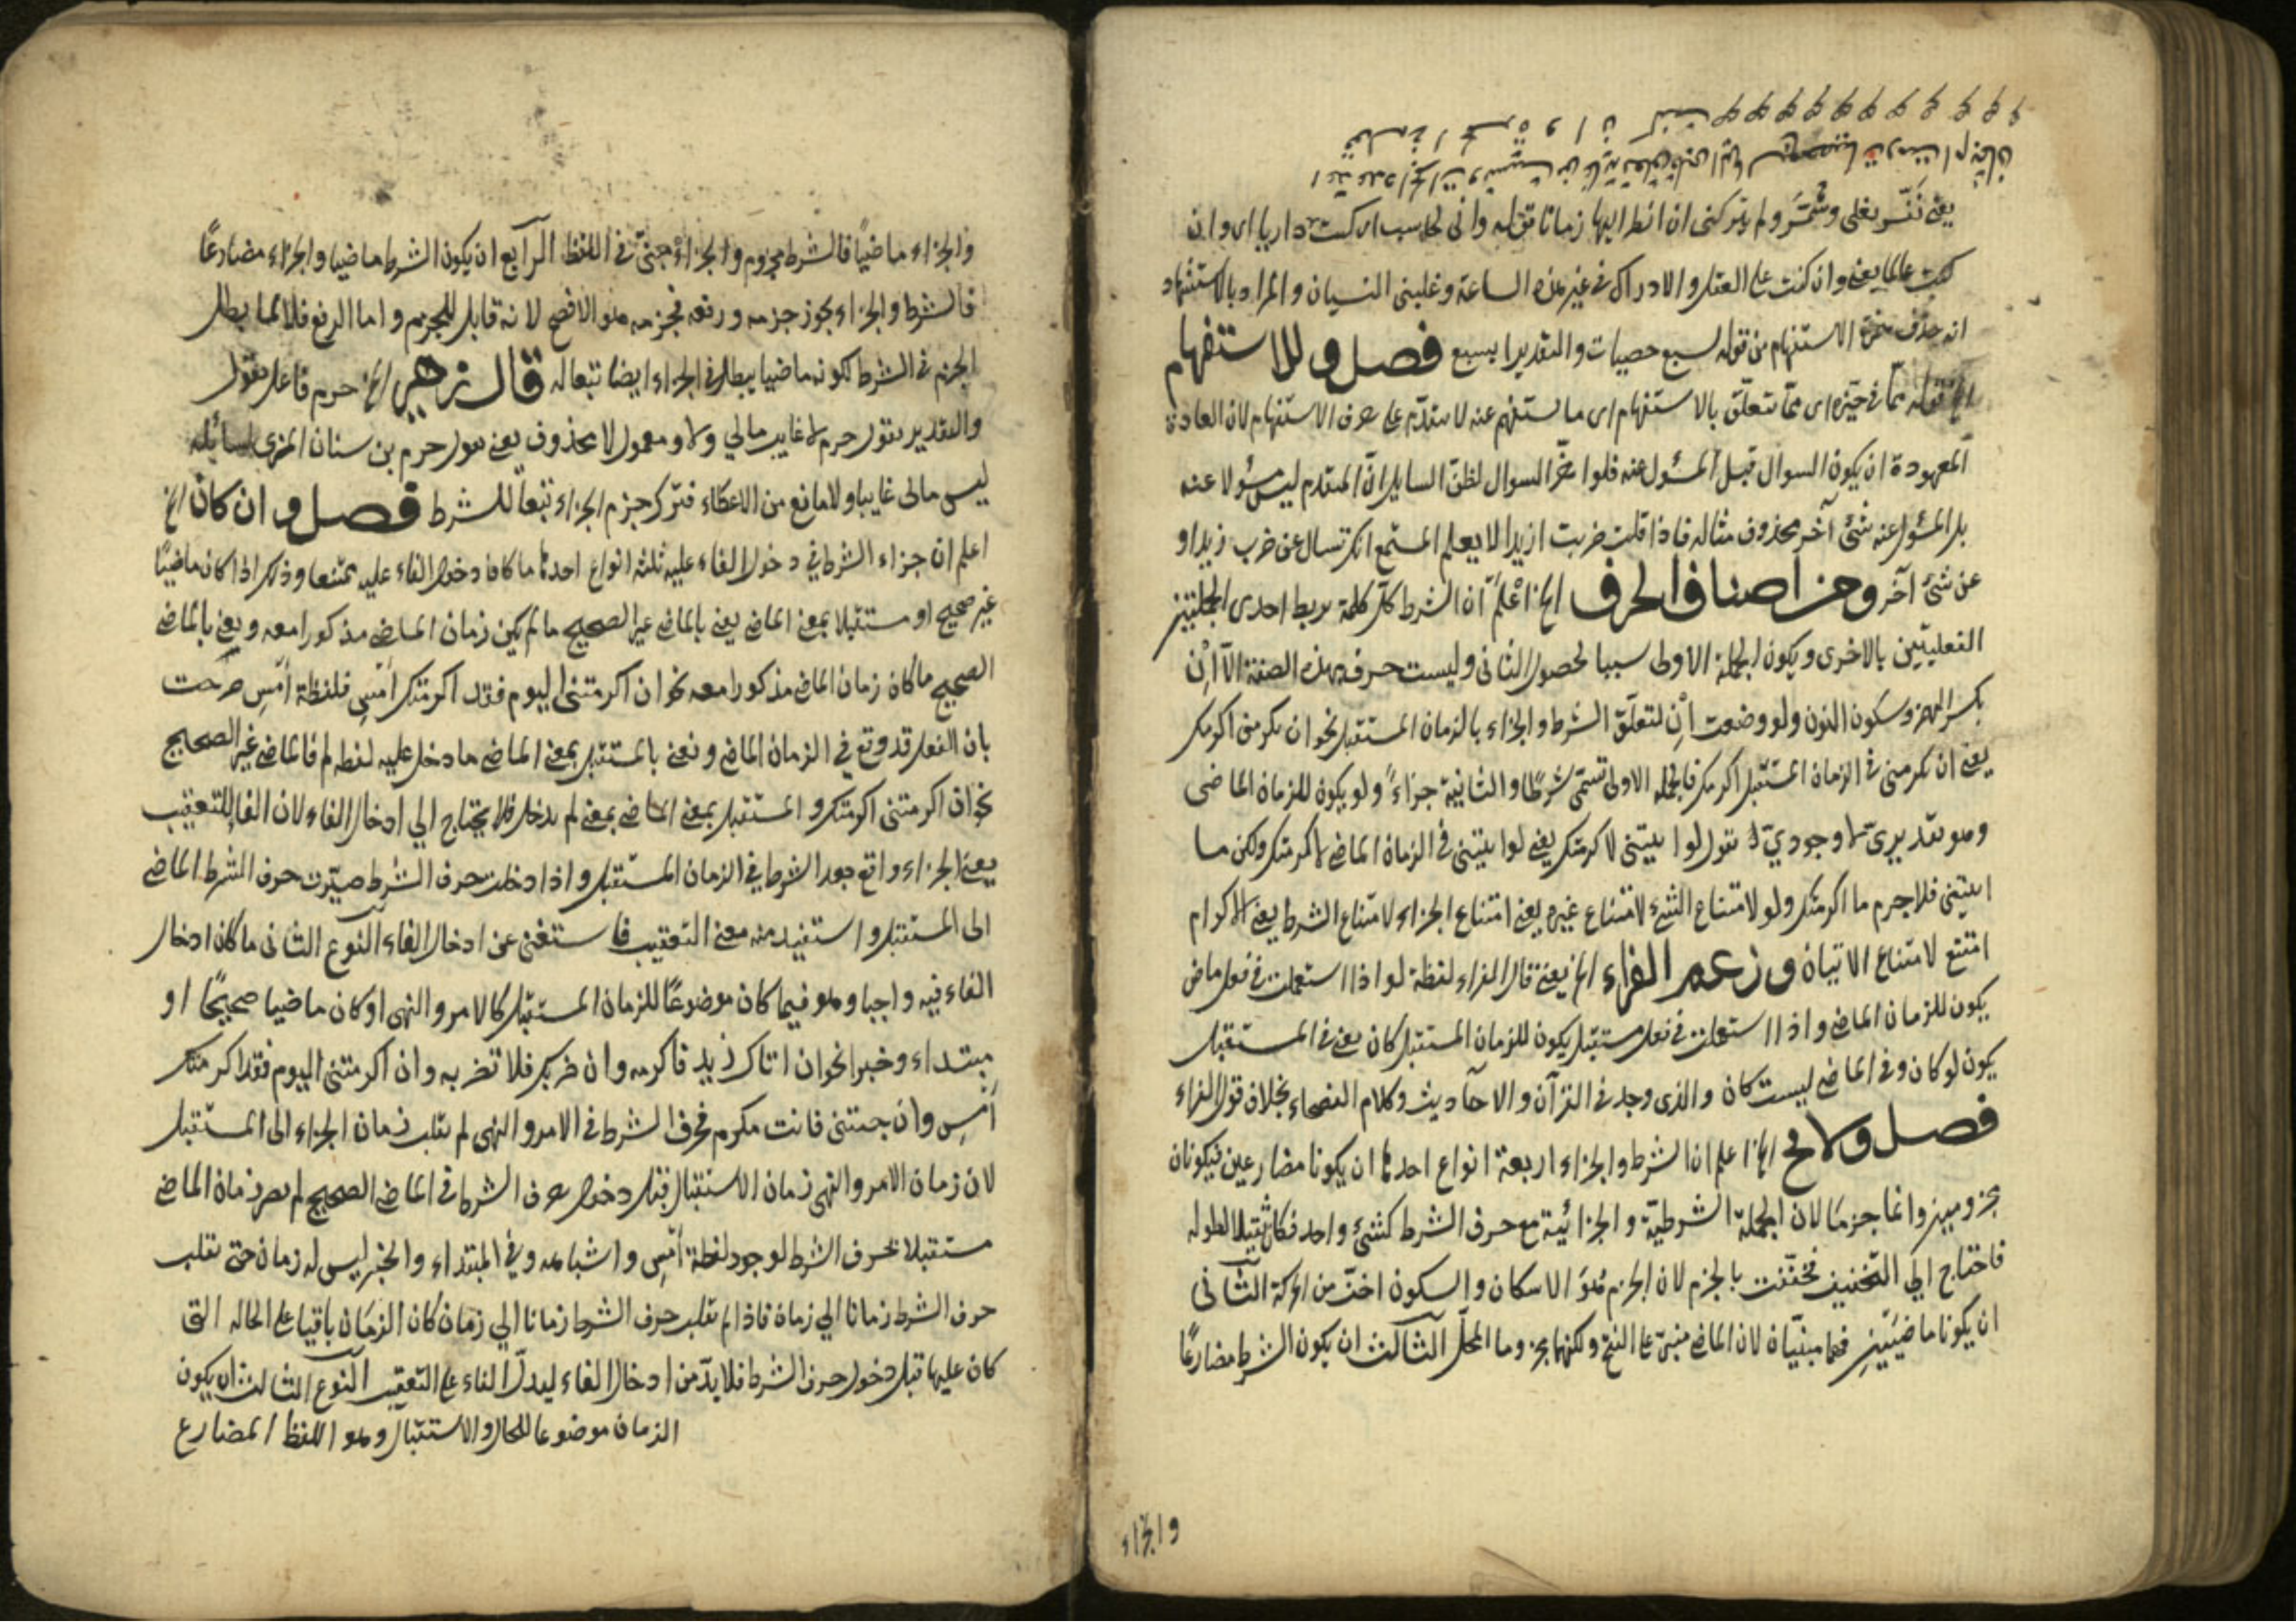 يعني نفسر بغلي وشمر ولم يتركني ان انظر اليها زمانا قوله واني لحاسب اي كنت داريا اي وان
كنت عالما يعني وان كنت على العقل والادراك في غير هذه الساعة وغلبني النسيان والمراد بالاستشهاد
انه حذف همزة الاستفهام من قوله بسبع حصيات والتقدير ابسبع فصل وللاستفهام
الخ قوله مما في حيزه اي مما يتعلق بالاستفهام اي ما يستفهم عنه لا يتقدم على حرف الاستفهام لان العادة
المعهودة ان يكون السوال قبل المسئول عنه فلو اخر السوال لظن السايل ان المتقدم ليس مسئولا عنه
بل المسئول عنه شئ آخر محذوف مثاله فاذا قلت ضربت ازيدا لا يعلم المستمع انك تسال عن ضرب زيد او
عن شئ آخر ومن اصناف الحرف الخ اعلم ان الشرط كل كلمة يربط احدى الجملتين
الفعليتين بالاخرى ويكون الجملة الاولى سببا لحصول الثاني وليست حرف بهذه الصفة الا ان
بكسر الهمزة وسكون النون ولو وضعت ان لتعلق الشرط والجزاء بالزمان المستقبل نحو ان تكرمني اكرمك
يعني ان تكرمني في الزمان المستقبل اكرمك فالجملة الاولى تسمى شرطا والثانية جزاء ولو يكون للزمان الماضي
وهو تقديري لا وجودي تقول لو اتيتني لاكرمتك يعني لو اتيتني في الزمان الماضي لاكرمتك ولكن ما
اتيتني فلاجرم ما اكرمتك ولو لامتناع الشئ لامتناع غيره يعني امتناع الجزاء لامتناع الشرط يعني الاكرام
امتنع لامتناع الاتيان وزعم الفراء الخ يعني قال الفراء لفظة لو اذا استعملت في فعل ماض
يكون للزمان الماضي واذا استعملت في فعل مستقبل يكون للزمان المستقبل كان يعني في المستقبل
يكون لو كان وفي الماضي ليست كان والذي وجد في القرآن والاحاديث وكلام الفصحاء بخلاف قول الفراء
فصل ولا يخ الخ اعلم ان الشرط والجزاء اربعة انواع احدها ان يكونا مضارعين فيكونان
مجزومين وانما جزما لان الجملة الشرطية والجزائية مع حرف الشرط كشئ واحد فكان ثقيلا لطوله
فاحتاج الي التخفيف فخففت بالجزم لان الجزم هو الاسكان والسكون اخف من الحركة الثاني
ان يكونا ماضيين فهما مبنيان لان الماضي مبني على الفتح ولكنهما مجزوما المحل الثالث ان يكون الشرط مضارعا
والجزاء
والجزاء ماضيا فالشرط مجزوم والجزاء مبني في اللفظ الرابع ان يكون الشرط ماضيا والجزاء مضارعا
فالشرط والجزاء يجوز جزمه ورفعه فجزمه هو الافصح لانه قابل للجزم واما الرفع فلانه لما بطل
الجزم في الشرط لكونه ماضيا يبطل في الجزاء ايضا تبعا له قال زهير الخ حرم فاعل يقول
والتقدير يقول حرم لا غايب مالي ولا ومعمول لا محذوف يعني يقول حرم بن سنان المزي لسائله
ليس مالي غايبا ولا مانع من الاعطاء فترك جزم الجزاء تبعا للشرط فصل وان كان الخ
اعلم ان جزاء الشرط في دخول الفاء عليه ثلثة انواع احدها ما كان دخول الفاء عليه ممتنعا وذلك اذا كان ماضيا
غير صحيح او مستقبلا بمعني الماضي يعني بالماضي غير الصحيح ما لم يكن زمان الماضي مذكورا معه ويعني بالماضي
الصحيح ما كان زمان الماضي مذكورا معه نحو ان اكرمتني اليوم فقد اكرمتك امس فلفظة امس صرحت
بان الفعل قد وقع في الزمان الماضي ونعني بالمستقبل بمعني الماضي ما دخل عليه لفظ لم فالماضي غير الصحيح
نحو ان اكرمتني اكرمتك والمستقبل بمعني الماضي بمعني لم يدخل فلا يحتاج الي ادخال الفاء لان الفاء للتعقيب
يعني الجزاء واقع بعد الشرط في الزمان المستقبل واذا دخلت حرف الشرط صيرت حرف الشرط الماضي
الى المستقبل واستفيد منه معني التعقيب فاستغني عن ادخال الفاء النوع الثاني ما كان ادخال
الفاء فيه واجبا وهو فيما كان موضوعا للزمان المستقبل كالامر والنهي او كان ماضيا صحيحا او
مبتداء وخبرا نحو ان اتاك زيد فاكرمه وان ضربك فلا تضربه وان اكرمتني اليوم فقد اكرمتك
امس وان جئتني فانت مكرم فحرف الشرط في الامر والنهي لم يقلب زمان الجزاء الى المستقبل
لان زمان الامر والنهي زمان الاستقبال قبل دخول حرف الشرط في الماضي الصحيح لم يصر زمان الماضي
مستقبلا بحرف الشرط لوجود لفظة امس واشباهه وفي المبتداء والخبر ليس له زمان حتى تقلب
حرف الشرط زمانا الي زمان فاذا لم تقلب حرف الشرط زمانا الي زمان كان الزمان باقيا على الحالة التي
كان عليها قبل دخول حرف الشرط فلا بد من ادخال الفاء ليدل الفاء على التعقيب النوع الثالث ان يكون
الزمان موضوعا للحال والاستقبال وهو اللفظ المضارع